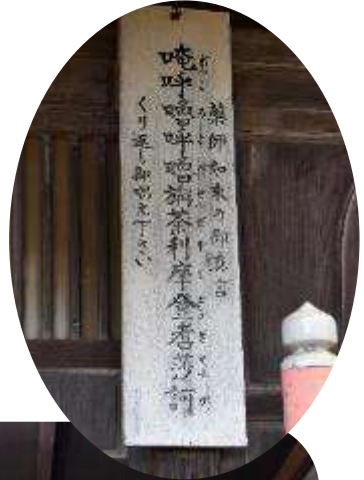 薬師如来の御真言
唵呼嚕呼嚕旃茶利摩登耆莎訶
くり返し御唱え下さい